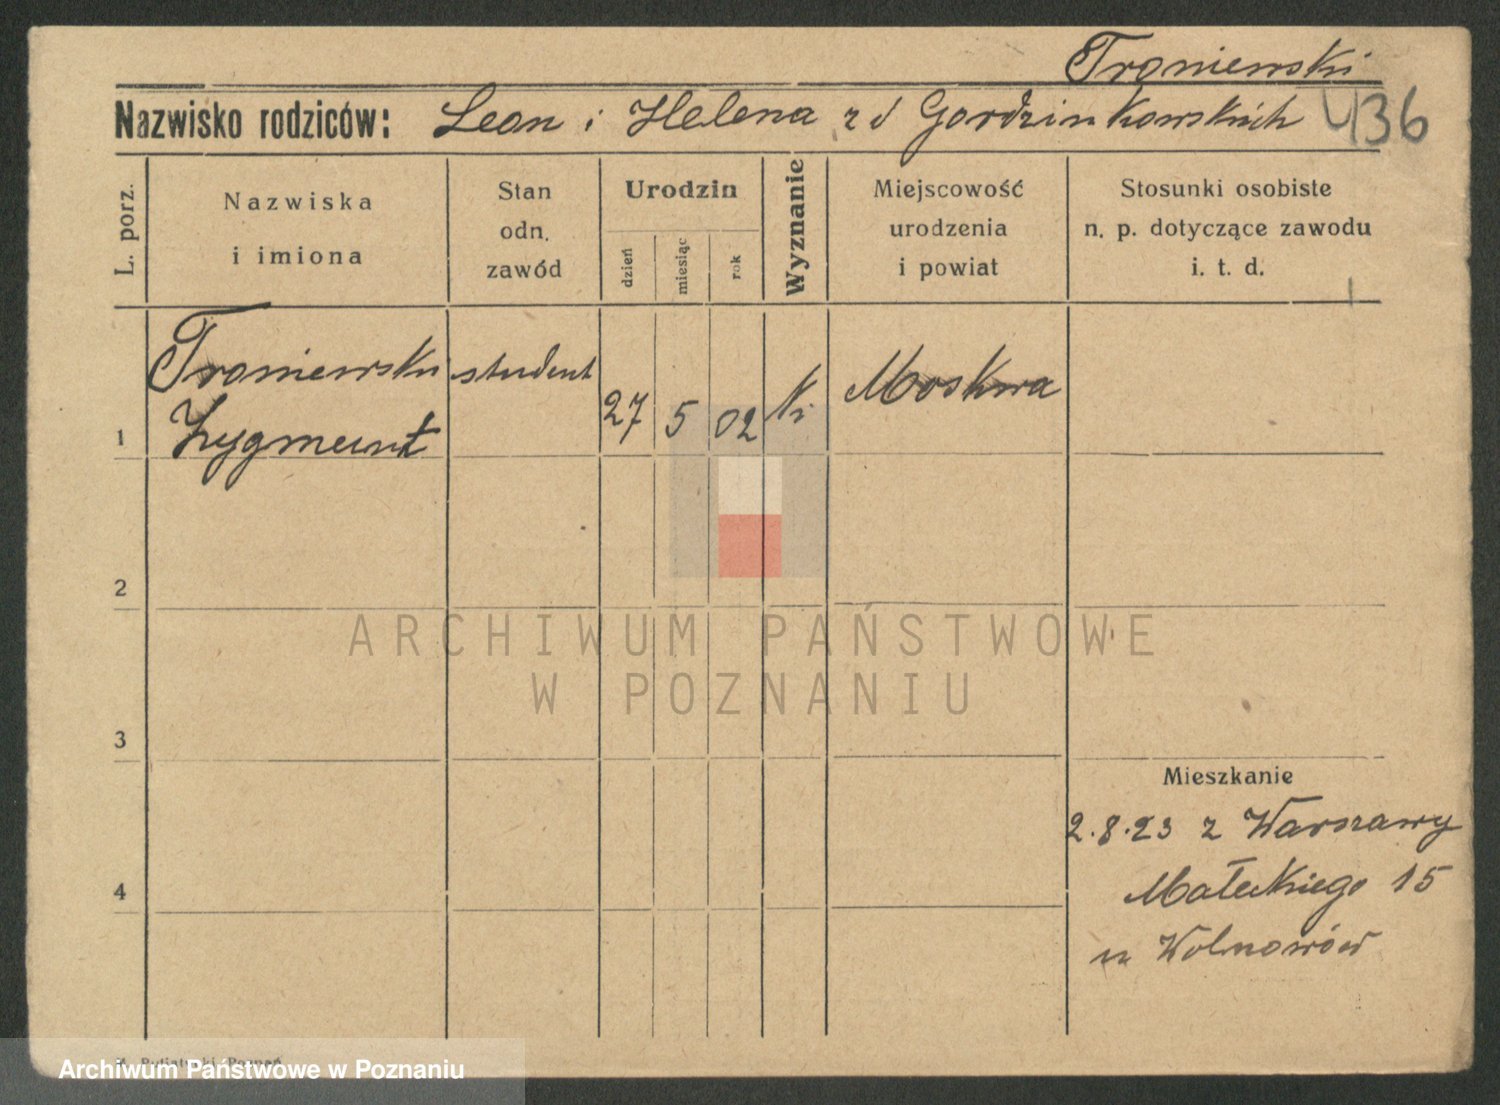 Troniewski
Nazwisko rodziców: Leon i Helena z d Gordzinkowskich 436
L. porz.
Nazwiska
i imiona
Stan
odn.
zawód
Urodzin
dzień
miesiąc
rok
Wyznanie
Miejscowość
urodzenia
i powiat
Stosunki osobiste
n. p. dotyczące zawodu
i. t. d.
1
Troniewski student 27 5 02 Moskwa
Zygmunt
2
ARCHIWUM PAŃSTWOWE
W POZNANIU
3
Mieszkanie
2.8.23 z Warszawy
4
Małeckiego 15
u Wolnowów
Poznań
Archiwum Państwowe w Poznaniu